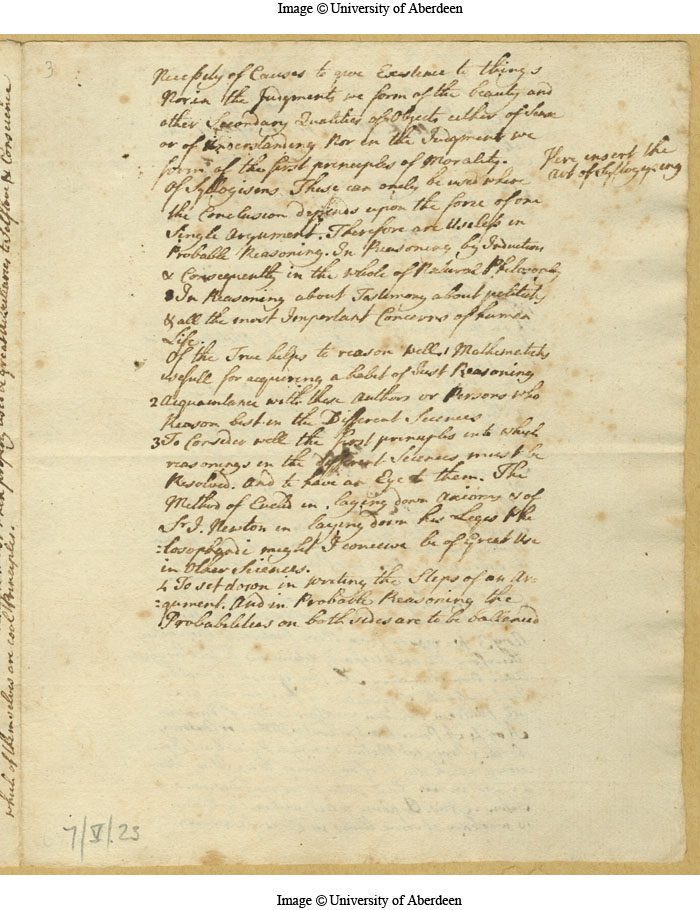 Image © University of Aberdeen
3
Necessity of Causes to give Existence to things
Nor in the Judgments we form of the beauty and
other Secondary Qualities of Objects either of Sense
or of Understanding Nor in the Judgment we
form of the first principles of Morality.
Here insert the
Art of Syllogizing
Of Syllogisms These can onely be used where
the Conclusion depends upon the force of one
Single Argument. Therefore are Useless in
Probable Reasoning. In Reasoning by Induction
& Consequently in the whole of Natural Philosophy
In Reasoning about Testimony about politicks
& all the most Important Concerns of human
Life.
Of the True helps to reason well 1 Mathematicks
usefull for acquiring a habit of Just Reasoning
2 Acquaintance with these Authors or Persons who
Reason best in the Different Sciences
3 To Consider well the first principles into which
reasonings in the different Sciences must be
Resolved. And to have an Eye to them. The
Method of Euclid in laying down Axioms & of
Sr I. Newton in laying down his Leges Phi
:losophandi might I conceive be of Great Use
in Other Sciences.
4 To set down in writing the Steps of an Ar-
:gument. And in Probable Reasoning the
Probabilities on both sides are to be ballanced
when properly used be great Auxiliaries to Self love & Conscience
which of themselves are cool Principles.
7/V/23
Image © University of Aberdeen